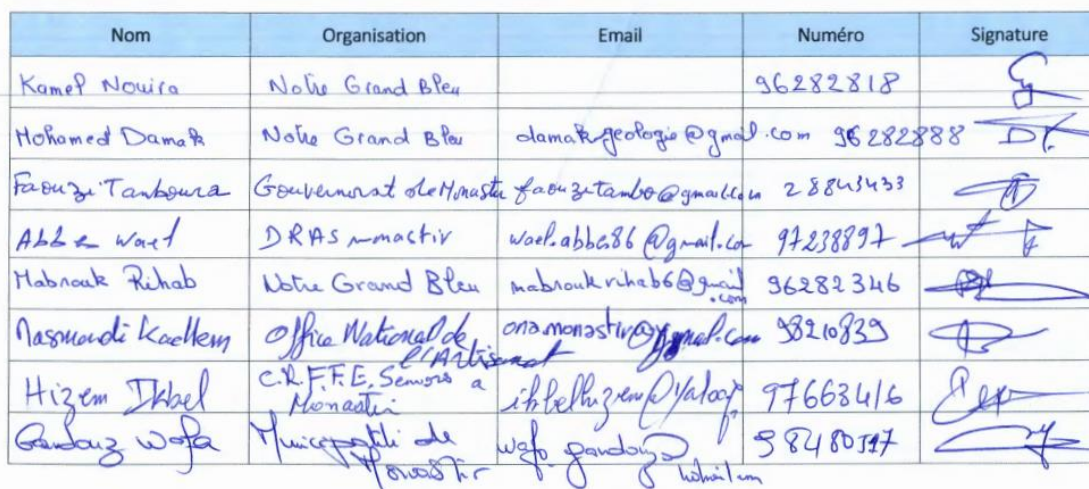 Nom Organisation Email Numéro Signature
Kamel Nouira Notre Grand Bleu 96282818
Mohamed Damak Notre Grand Bleu damak.geologie@gmail.com 96282888
Faouzi Tamboura Gouvernorat de Monastir faouzitambo@gmail.com 28843433
Abbes Wael DRAS monastir wael.abbes86@gmail.com 97238897
Mabrouk Rihab Notre Grand Bleu mabroukrihab6@gmail.com 96282346
Masmoudi Kaethem Office National de l'Artisanat onamonastir@gmail.com 98210839
Hizem Ikbel C.R.F.F.E. Seniors a Monastir ikbelhizem@Yahoo 97663416
Gandouz Wafa Municipalité de Monastir wafa gandouz 98480517